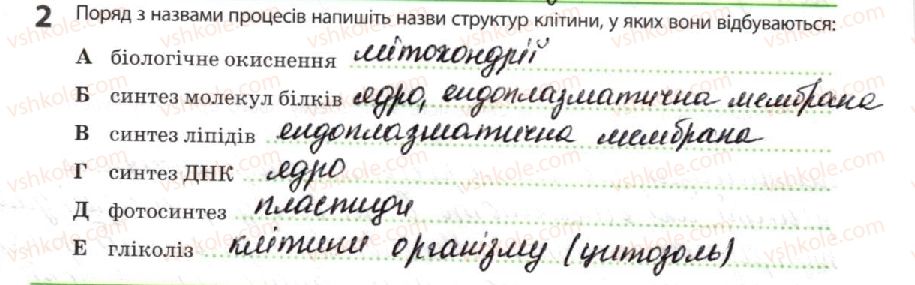 2 Поряд з назвами процесів напишіть назви структур клітини, у яких вони відбуваються:
А біологічне окиснення мітохондрії
Б синтез молекул білків ядро, ендоплазматична мембрана
В синтез ліпідів ендоплазматична мембрана
Г синтез ДНК ядро
Д фотосинтез пластиди
Е гліколіз клітини організму (цитозоль)